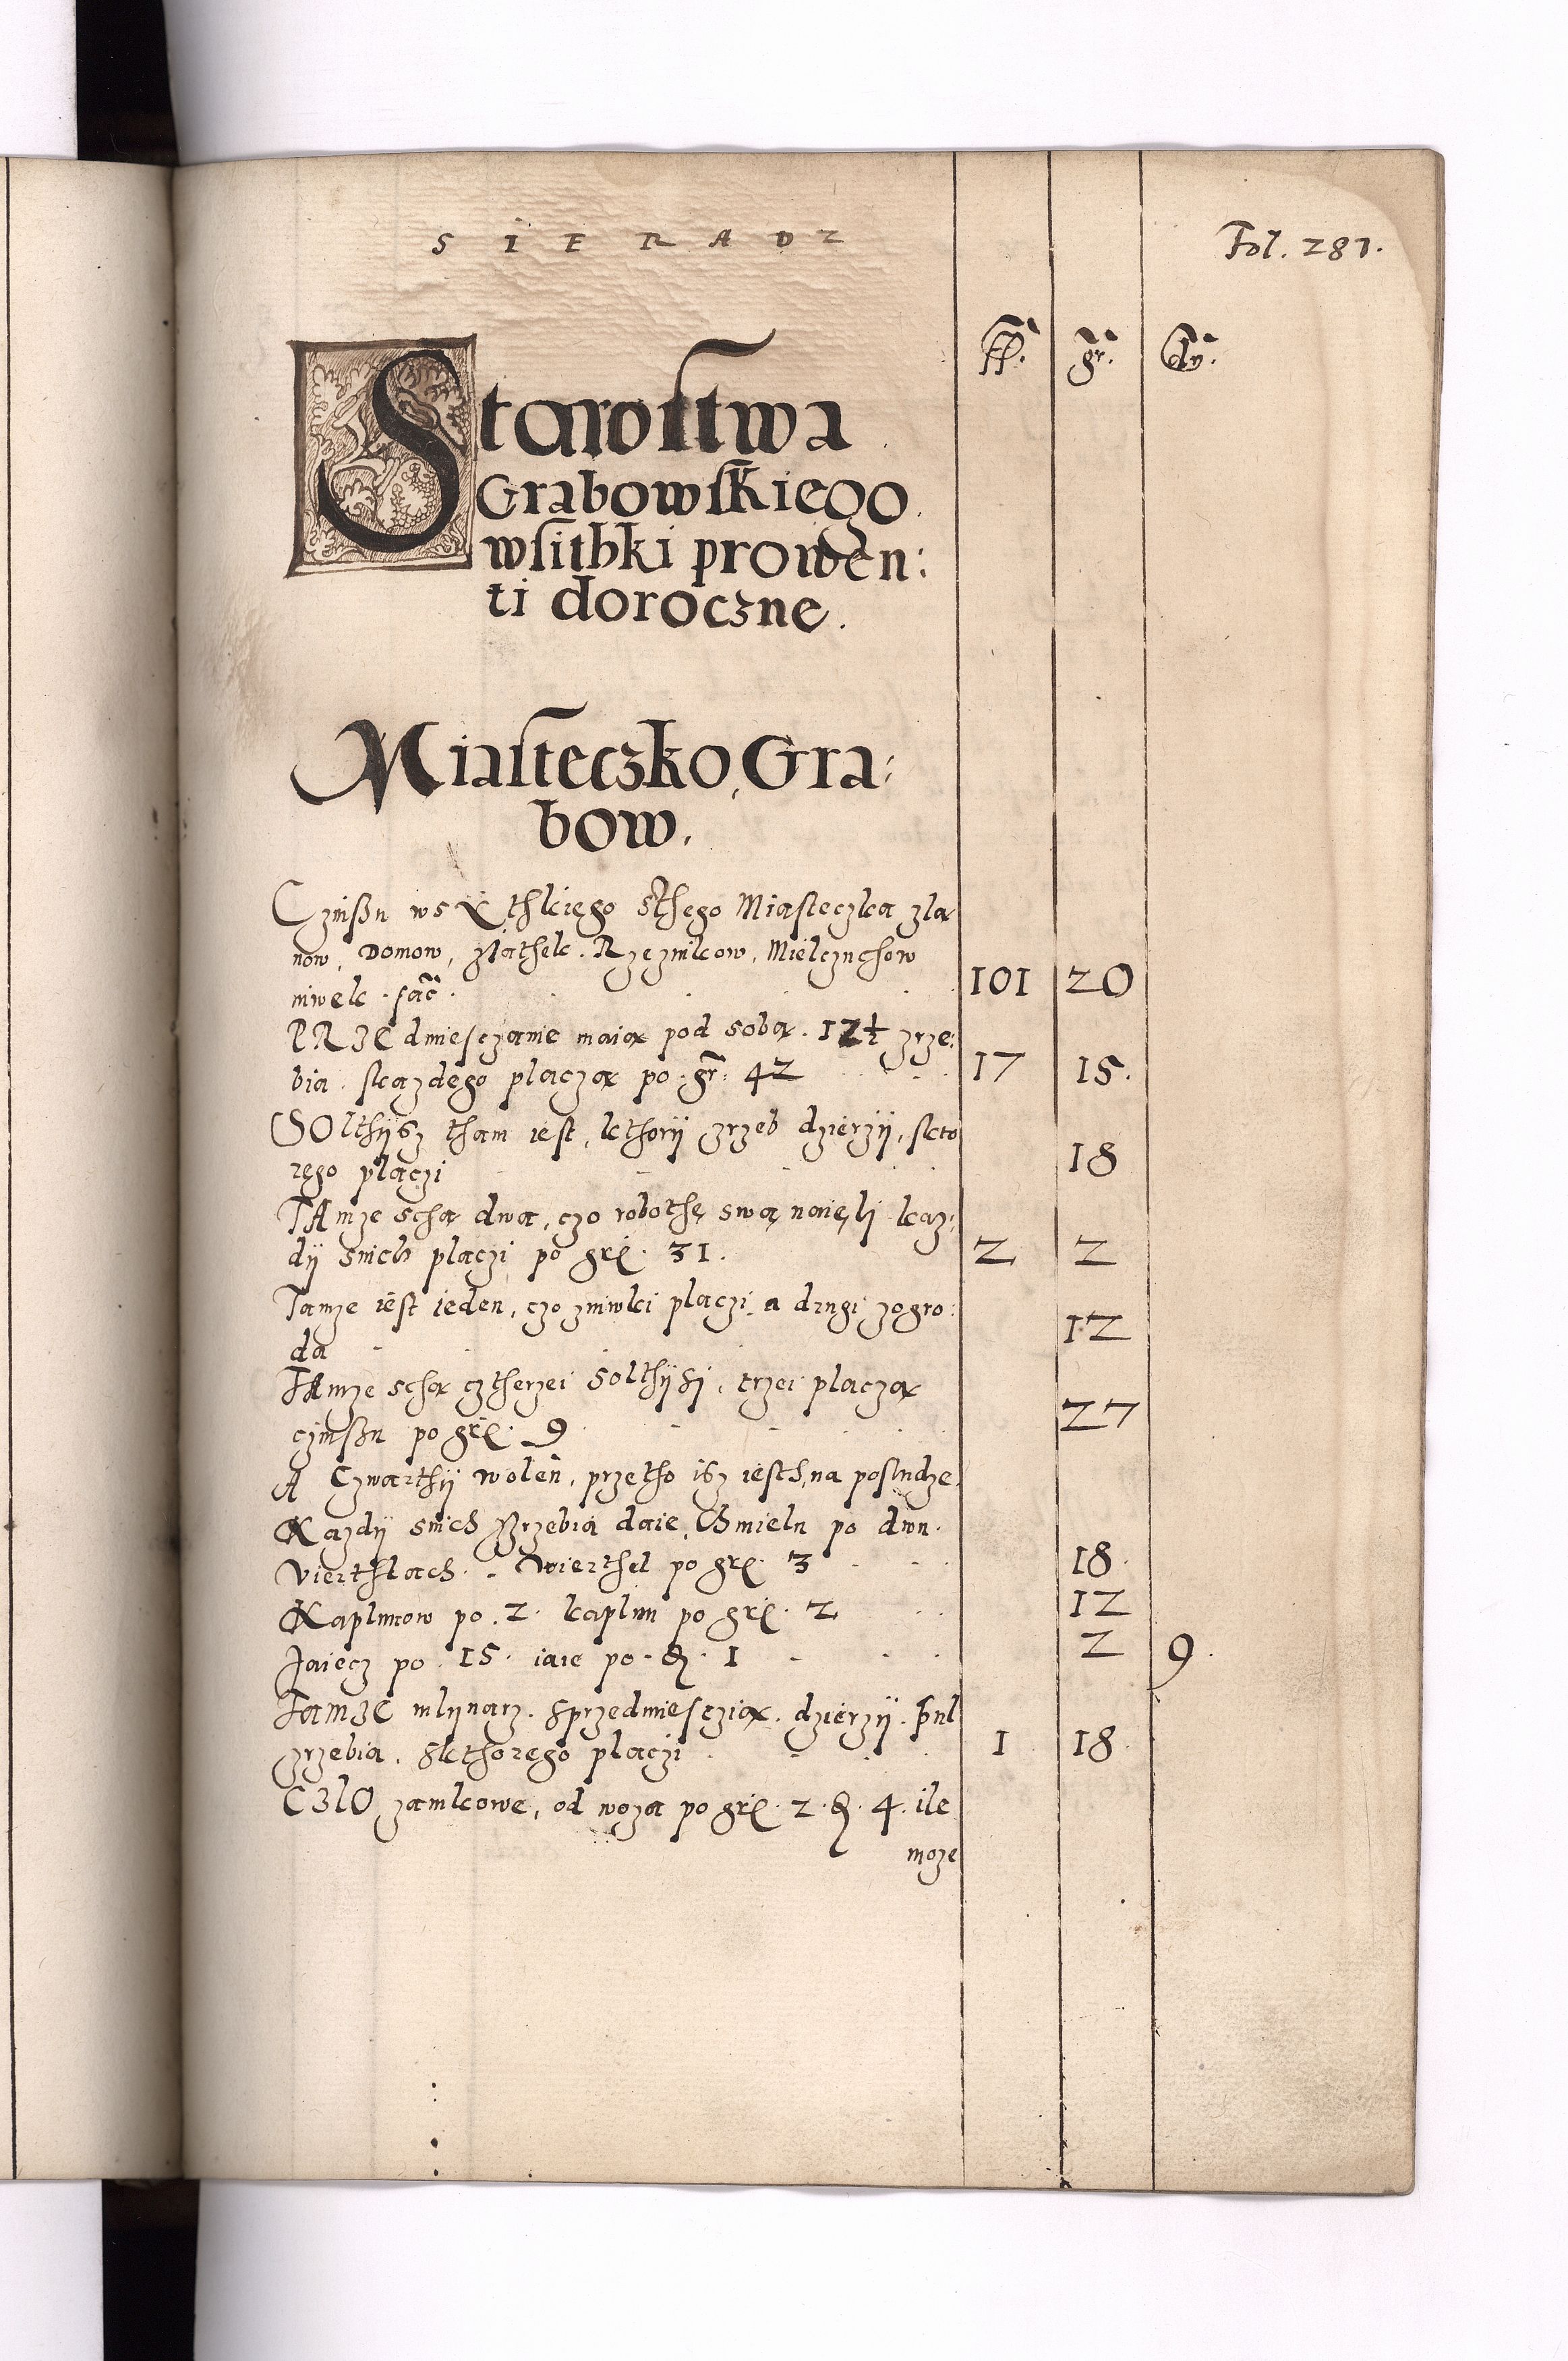 SIERADZ
Fol. 281.
ff. gr. dn.
Starostwa
Grabowskiego
wsithki prowen:
ti doroczne.
Miasteczko Gra:
bow.
Czinssu wsythkiego sthego Miasteczka zła
now, Domow, yiathek. Rzeznikow, Mielczuchow
niwek. facit. 101 20
PRZEdmiesczanie maią pod sobą. 12½ zrze:
bia. skazdego płaczą po. gr. 42 17 15.
SOlthijsz tham iest, kthorij zrzeb dzierzij, skto
rego płaczi 18
TAmze schą dwa, czo robothę swą naięli kaz:
dij snich płaczi po grÿ. 31. 2 2
Tamze iest ieden, czo zniwki płaczi, a drugi zogro:
da 12
TAmze schą cztherzei Solthijsi, trzei płaczą
czinssu po grÿ. 9 27
A Czwarthij wolen, przetho isz iesth, na posludze.
Kazdij snich Zrzebia daie, Chmielu po dwu.
Vierthlach. Wierthel po grÿ. 3 18.
Kaplunow po. 2. kaplun po grÿ. 2 12
Jaiecz po 15. iaie po. d. 1 2 9.
TamzE młijnarz. sprzedmiesczią. dzierzij. puł
zrzebia. skthorego płaczi 1 18.
CZlO zamkowe, od woza po grÿ. 2. d. 4. ile
moze